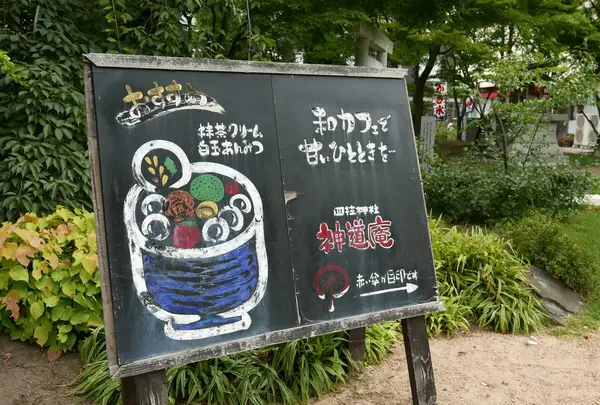 おすすめ
抹茶クリーム
白玉あんみつ
和カフェで
甘いひとときを…
四柱神社
神道庵
赤い傘が目印です
氷